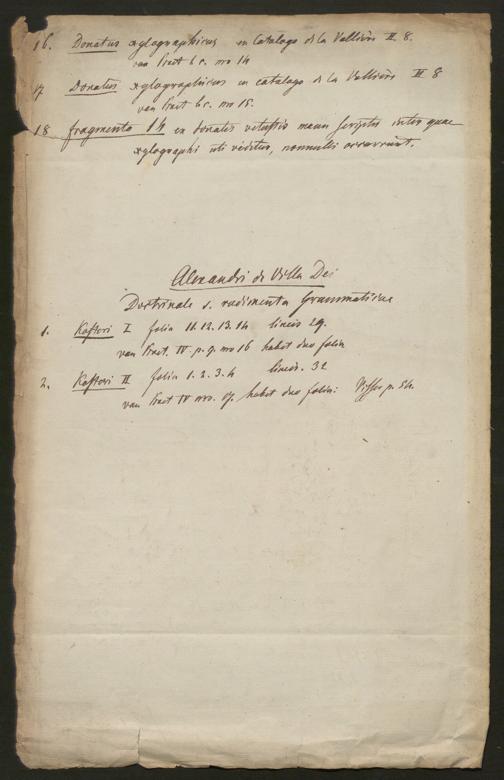 16. Donatus xylographicus in Catalogo de la Valliere II 8.
van Praet l. c. no 14
17 Donatus xylographicus in catalogo de la Valliere II 8
van Praet l. c. no 15.
18 fragmenta 14 ex donatis vetustis manu scriptis inter quae
xylographi uti videtur, nonnulli occurrunt.
Alexandri de Villa Dei
Doctrinale s. rudimenta Grammaticae
1. I folia 11. 12. 13. 14 lineis 29.
van Praet. IV. p. 9. no 16 habet duo folia
2. II folia 1. 2. 3. 4 lineis. 32
van Praet IV nro. 17. habet duo folia: p. 54.